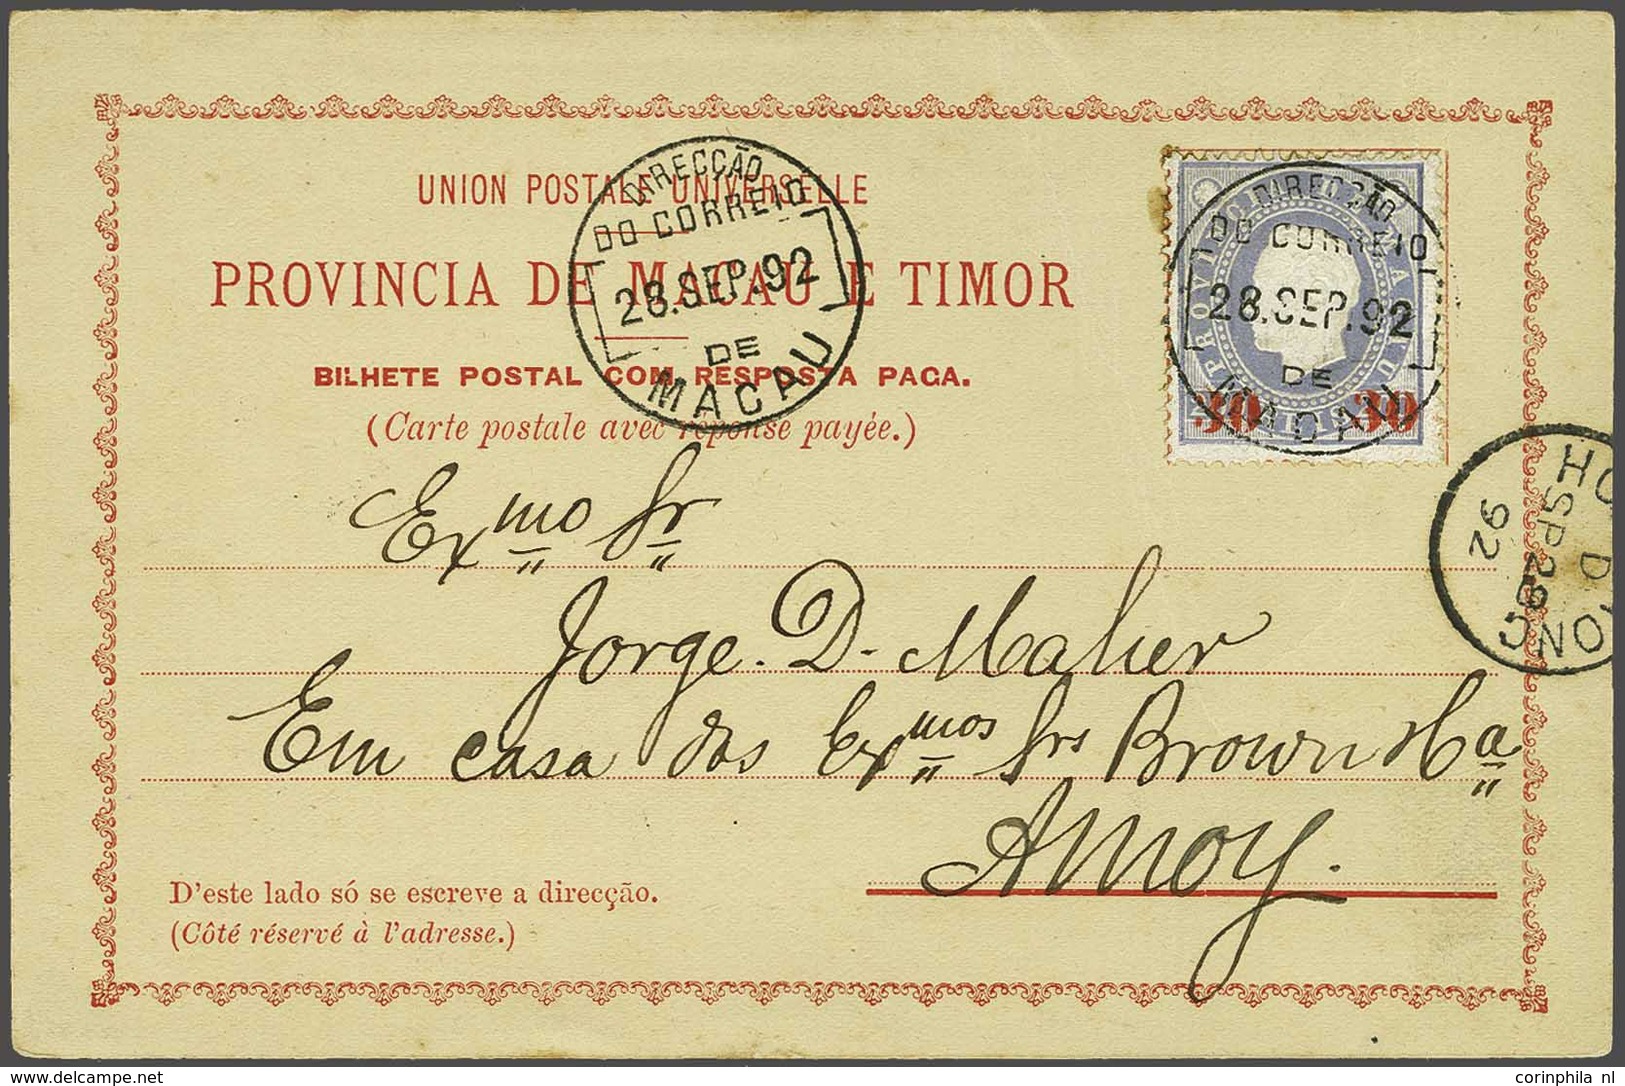 UNION POSTALE UNIVERSELLE
PROVINCIA DE MACAU E TIMOR
BILHETE POSTAL COM RESPOSTA PAGA.
(Carte postale avec réponse payée.)
DIRECÇÃO
DO CORREIO
28.SEP.92
DE
MACAU
DIRECÇÃO
DO CORREIO
28.SEP.92
DE
MACAU
30 30
HO
SP 29
92
D
ONG
Exmo Sr
Jorge. D. Maher
Em casa dos Exmos Srs Brown & Ca
Amoy.
D'este lado só se escreve a direcção.
(Côté réservé à l'adresse.)
delcampe.net
corinphila nl